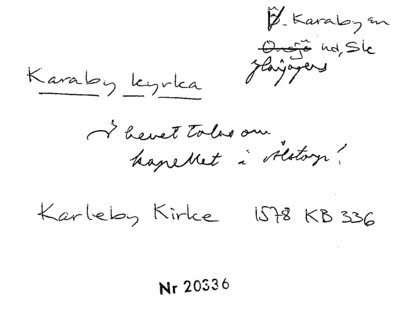 V. Karaby sn
Onsjö hd, Sk
Karaby kyrka
i brevet talas om
kapellet i Ålstorp!
Karleby Kirke 1578 KB 336
Nr 20336